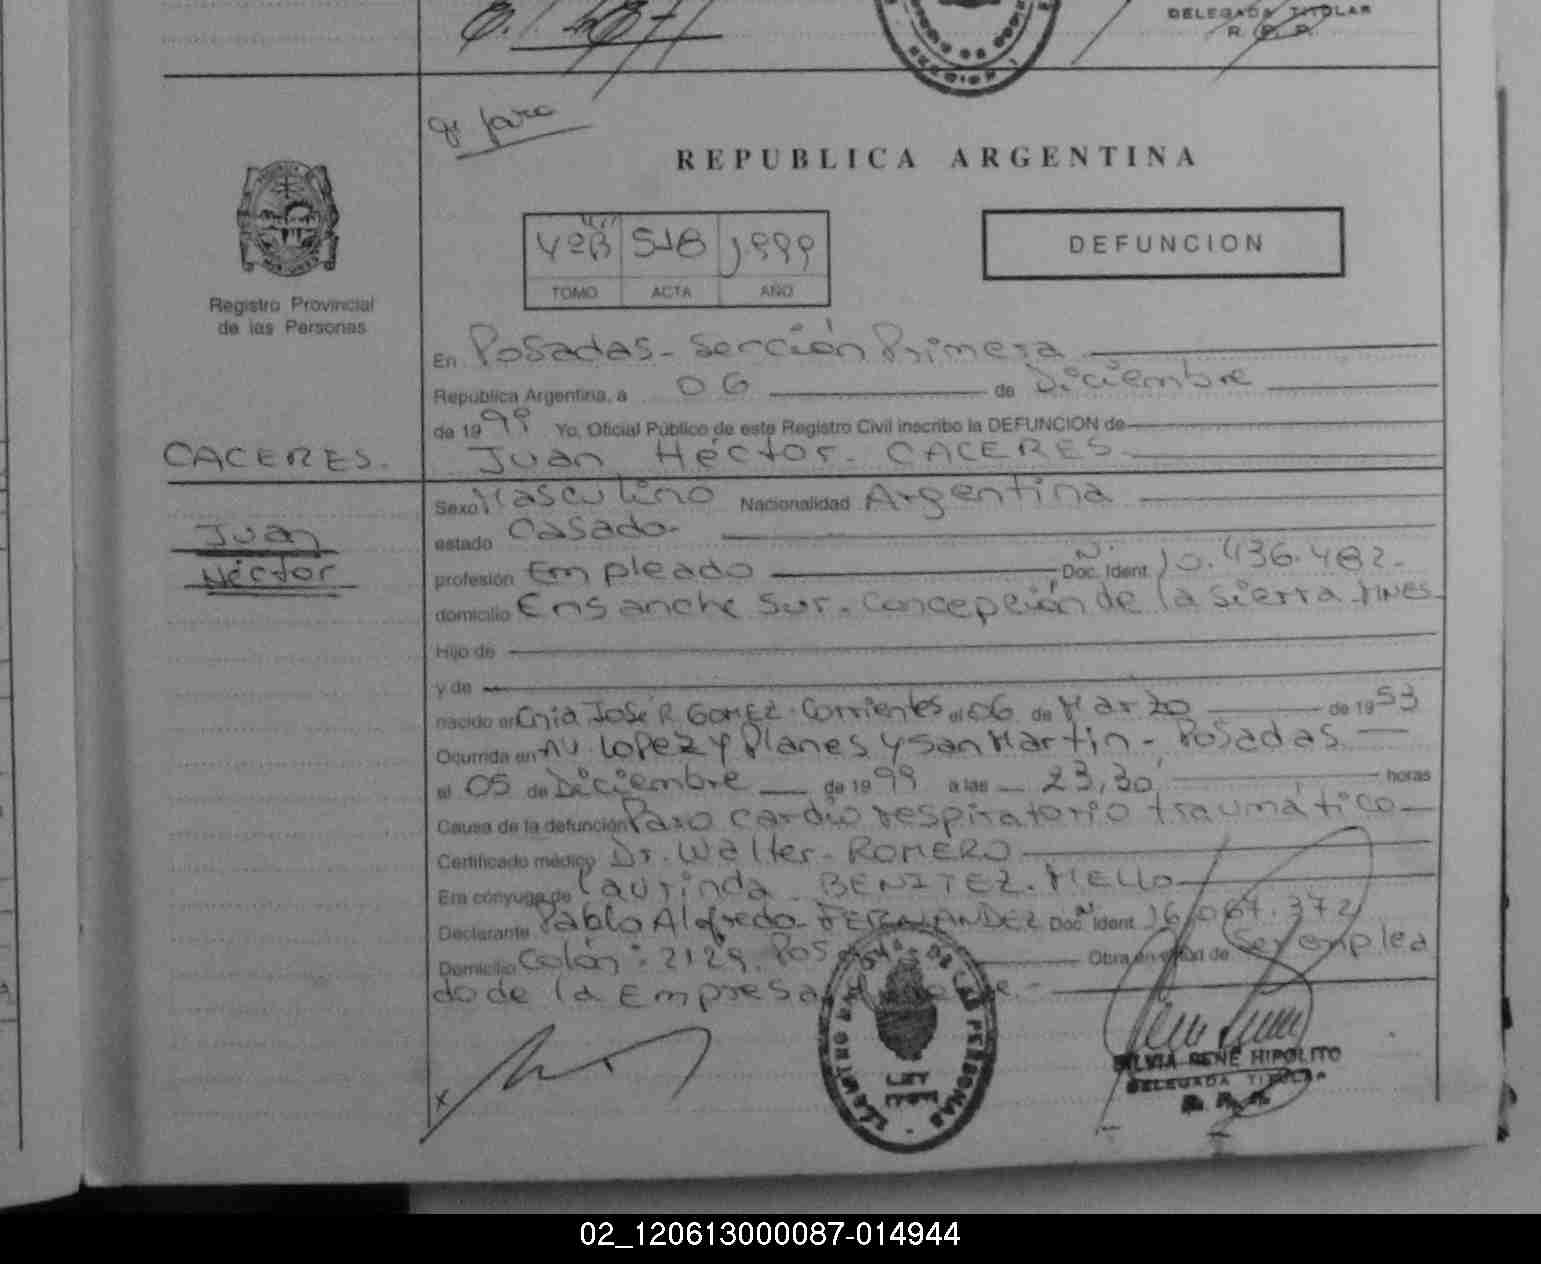 DELEGADA TITULAR
R. P. P.
REPUBLICA ARGENTINA
4ºB 518 1.999
TOMO ACTA AÑO
DEFUNCION
Registro Provincial
de las Personas
En Posadas - Sección Primera
República Argentina, a 06 de Diciembre
de 1999 Yo, Oficial Público de este Registro Civil inscribo la DEFUNCION de
CACERES. Juan Héctor. CACERES
Juan
Héctor
Sexo Masculino Nacionalidad Argentina
estado Casado-
profesión Empleado Doc. Ident. Nº 10.436.482.
domicilio Ensanche Sur. Concepción de la Sierra. MNES.
Hijo de
y de
nacido en Cnia José R. GOMEZ. Corrientes el 06 de Marzo de 1953
Ocurrida en AV. Lopez y Planes y San Martin - Posadas
el 05 de Diciembre de 1999 a las 23,30 horas
Causa de la defunción Paro cardio respiratorio traumático
Certificado médico Dr. Walter. ROMERO
Era cónyuge de Laurinda. BENITEZ. MELLO
Declarante Pablo Alfredo FERNANDEZ Doc. Ident. Nº 16.067.372
Domicilio Colón: 2129. Pos Obra en de Ser emplea
do de la Empresa
REGISTRO DE LAS PERSONAS
LEY
SILVIA RENE HIPOLITO
DELEGADA TITULAR
R. P. P.
02_120613000087-014944